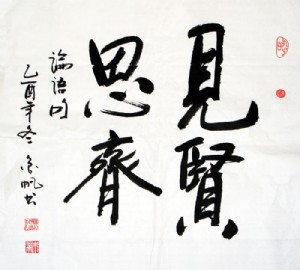 見賢
思齊
論語句
乙酉年冬